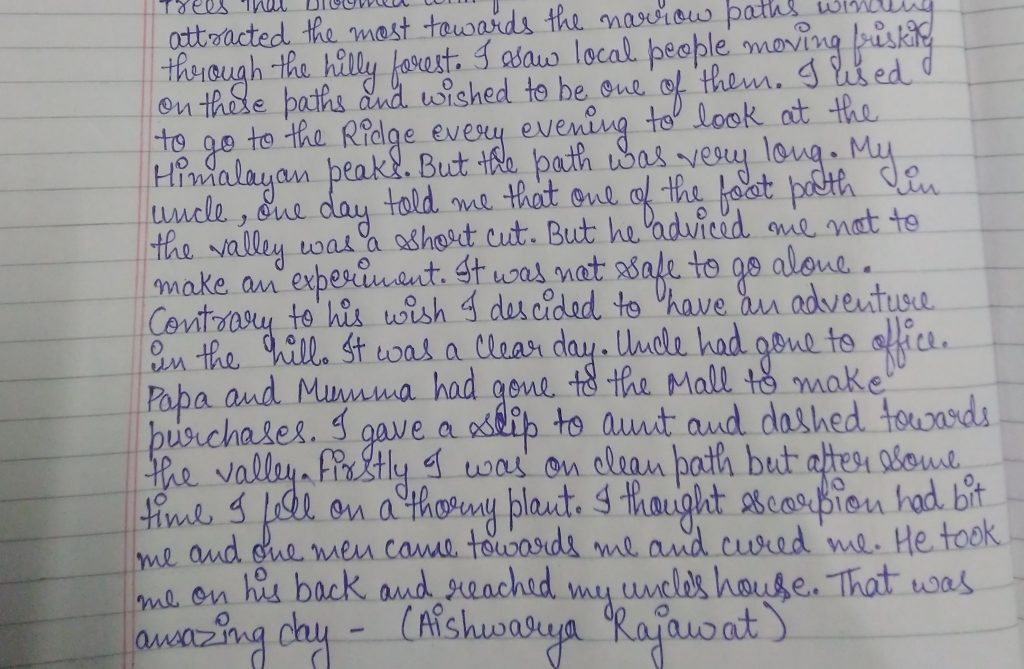 Trees that bloomed
attracted the most towards the narrow paths winding
through the hilly forest. I saw local people moving friskily
on these paths and wished to be one of them. I used
to go to the Ridge every evening to look at the
Himalayan peaks. But the path was very long. My
uncle, one day told me that one of the foot path in
the valley was a short cut. But he adviced me not to
make an experiment. It was not safe to go alone.
Contrary to his wish I descided to have an adventure
in the hill. It was a clear day. Uncle had gone to office.
Papa and Mumma had gone to the Mall to make
purchases. I gave a slip to aunt and dashed towards
the valley. Firstly I was on clean path but after some
time I fell on a thorny plant. I thought scorpion had bit
me and one men came towards me and cured me. He took
me on his back and reached my uncle's house. That was
amazing day - (Aishwarya Rajawat)